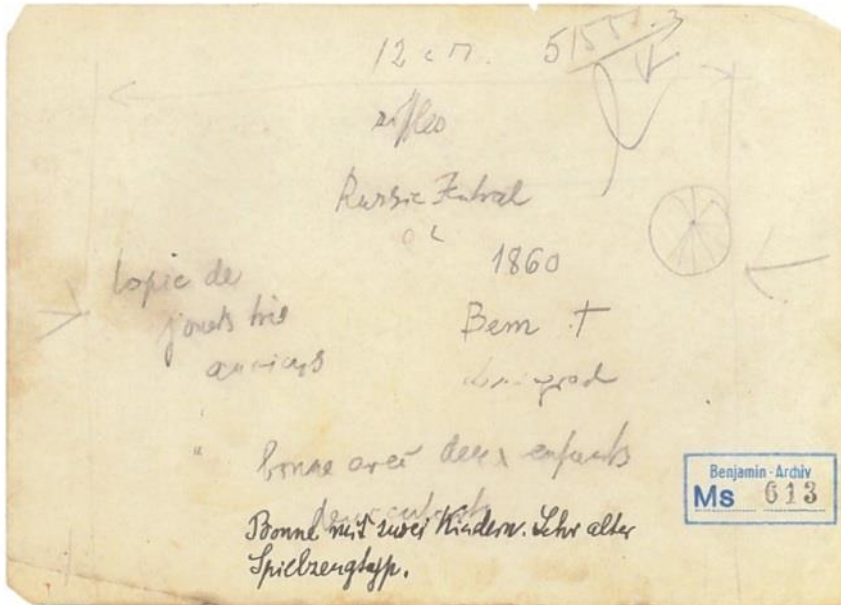 12 cm.
Russie Zentral
1860
copie de
jouets très
anciens
Bem †
Leningrad
bonne avec deux enfants
Bonne mit zwei Kindern. Sehr alter
Spielzeugtyp.
Benjamin-Archiv
Ms 613